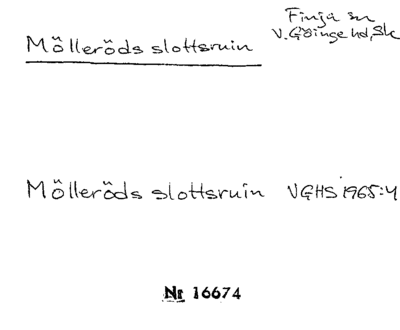 Finja sn
V. Göinge hd, Sk
Mölleröds slottsruin
Mölleröds slottsruin VGHS 1965:4
Nr 16674